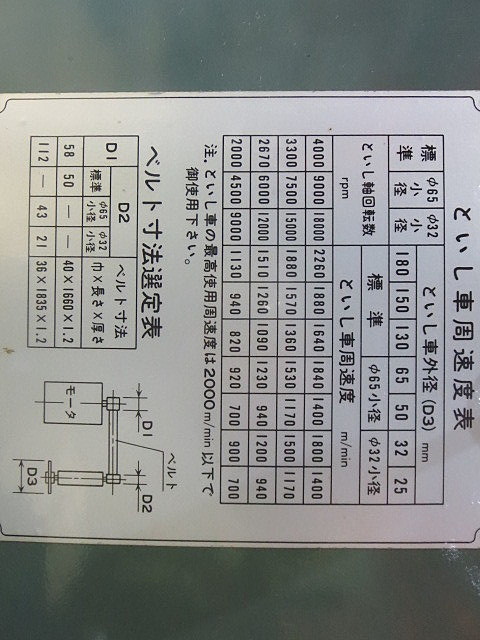 といし車周速度表
標準 φ65小径 φ32小径 といし車外径 (D3) mm
180 150 130 65 50 32 25
といし軸回転数 標準 φ65小径 φ32小径
rpm といし車周速度 m/min
4000 9000 18000 2260 1880 1640 1840 1400 1800 1400
3300 7500 15000 1880 1570 1360 1530 1170 1500 1170
2670 6000 12000 1510 1260 1090 1230 940 1200 940
2000 4500 9000 1130 940 820 920 700 900 700
注．といし車の最高使用周速度は2000m/min以下で
御使用下さい。
ベルト寸法選定表
D1 D2 ベルト寸法
標準 φ65小径 φ32小径 巾×長さ×厚さ
58 50 — — 40×1660×1.2
112 — 43 21 36×1835×1.2
モータ
D1
ベルト
D2
D3